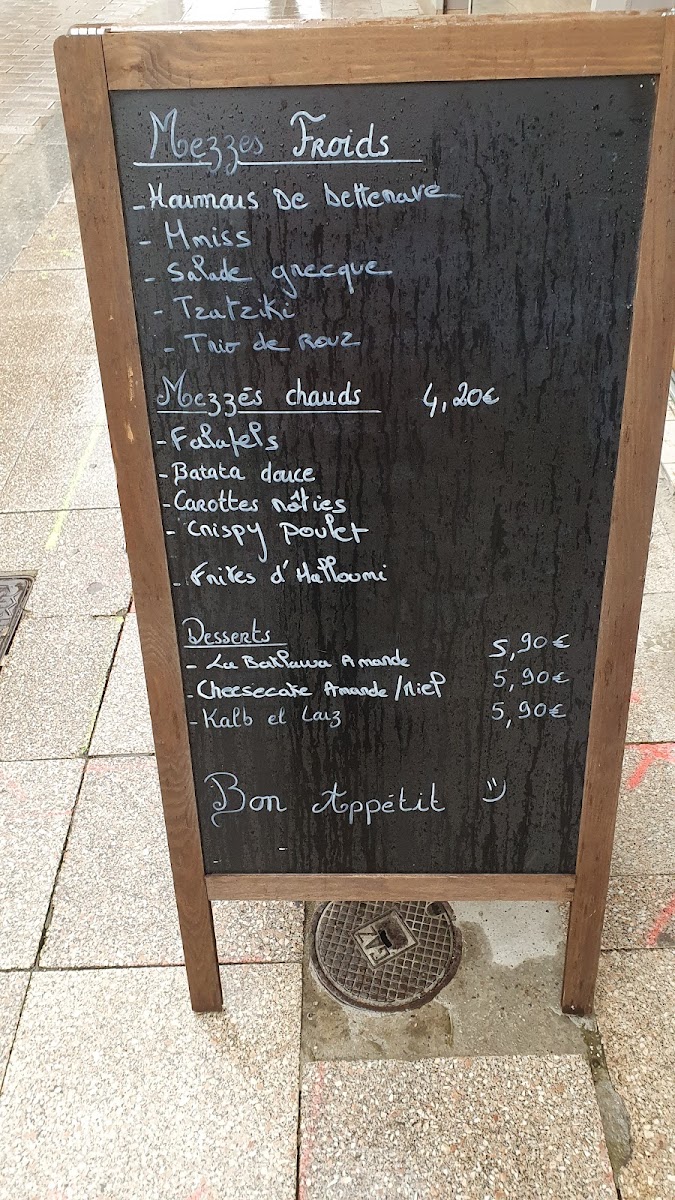 Mezzes Froids
- Houmous De betterave
- Hmiss
- Salade grecque
- Tzatziki
- Trio de Rouz
Mezzés chauds 4,20€
- Falafels
- Batata douce
- Carottes rôties
- Crispy poulet
- Frites d'Halloumi
Desserts
- La Baklawa Amande 5,90€
- Cheesecake Amande/Miel 5,90€
- Kalb el Louz 5,90€
Bon Appétit
GAZ